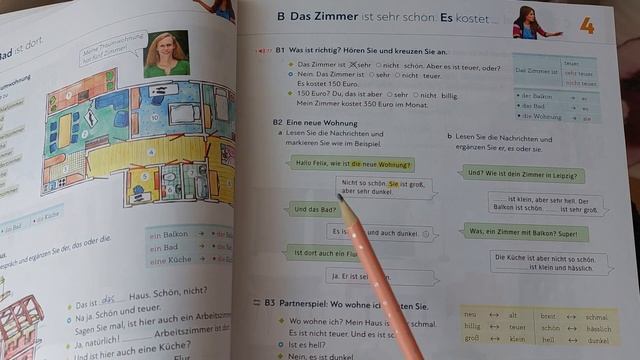 Bad ist dort.
Meine Traumwohnung
hat fünf Zimmer!
der Balkon
die Küche
ein Balkon →
ein Bad →
eine Küche →
Das ist das Haus. Schön, nicht?
Na ja. Schön und teuer.
Sagen Sie mal, ist hier auch ein Arbeitszimmer
Ja, natürlich! Arbeitszimmer ist
Und ist hier auch eine Küche?
Flur
B Das Zimmer ist sehr schön. Es kostet ...
4
B1 Was ist richtig? Hören Sie und kreuzen Sie an.
Das Zimmer ist ⊗ sehr ○ nicht schön. Aber es ist teuer, oder?
Nein. Das Zimmer ist ○ sehr ○ nicht teuer.
Es kostet 150 Euro.
150 Euro? Du, das ist aber ○ sehr ○ nicht billig.
Mein Zimmer kostet 350 Euro im Monat.
Das Zimmer ist teuer.
sehr teuer.
nicht teuer.
der Balkon → er
das Bad → es
die Wohnung → sie
B2 Eine neue Wohnung
a Lesen Sie die Nachrichten und
markieren Sie wie im Beispiel.
Hallo Felix, wie ist die neue Wohnung?
Nicht so schön. Sie ist groß,
aber sehr dunkel.
Und das Bad?
Es is und auch dunkel.
Ist dort auch ein
Ja. Er ist se
b Lesen Sie die Nachrichten und
ergänzen Sie er, es oder sie.
Und? Wie ist dein Zimmer in Leipzig?
ist klein, aber sehr hell. Der
Balkon ist schön. ist sehr groß.
Was, ein Zimmer mit Balkon? Super!
Die Küche ist aber nicht so schön.
ist klein und hässlich.
B3 Partnerspiel: Wo wohne ich? ten Sie.
Wo wohne ich? Mein Haus is schmal.
Es ist nicht teuer. Und es is
Ist es hell?
Nein, es ist dunkel.
neu ↔ alt breit ↔ schmal
billig ↔ teuer schön ↔ hässlich
groß ↔ klein hell ↔ dunkel